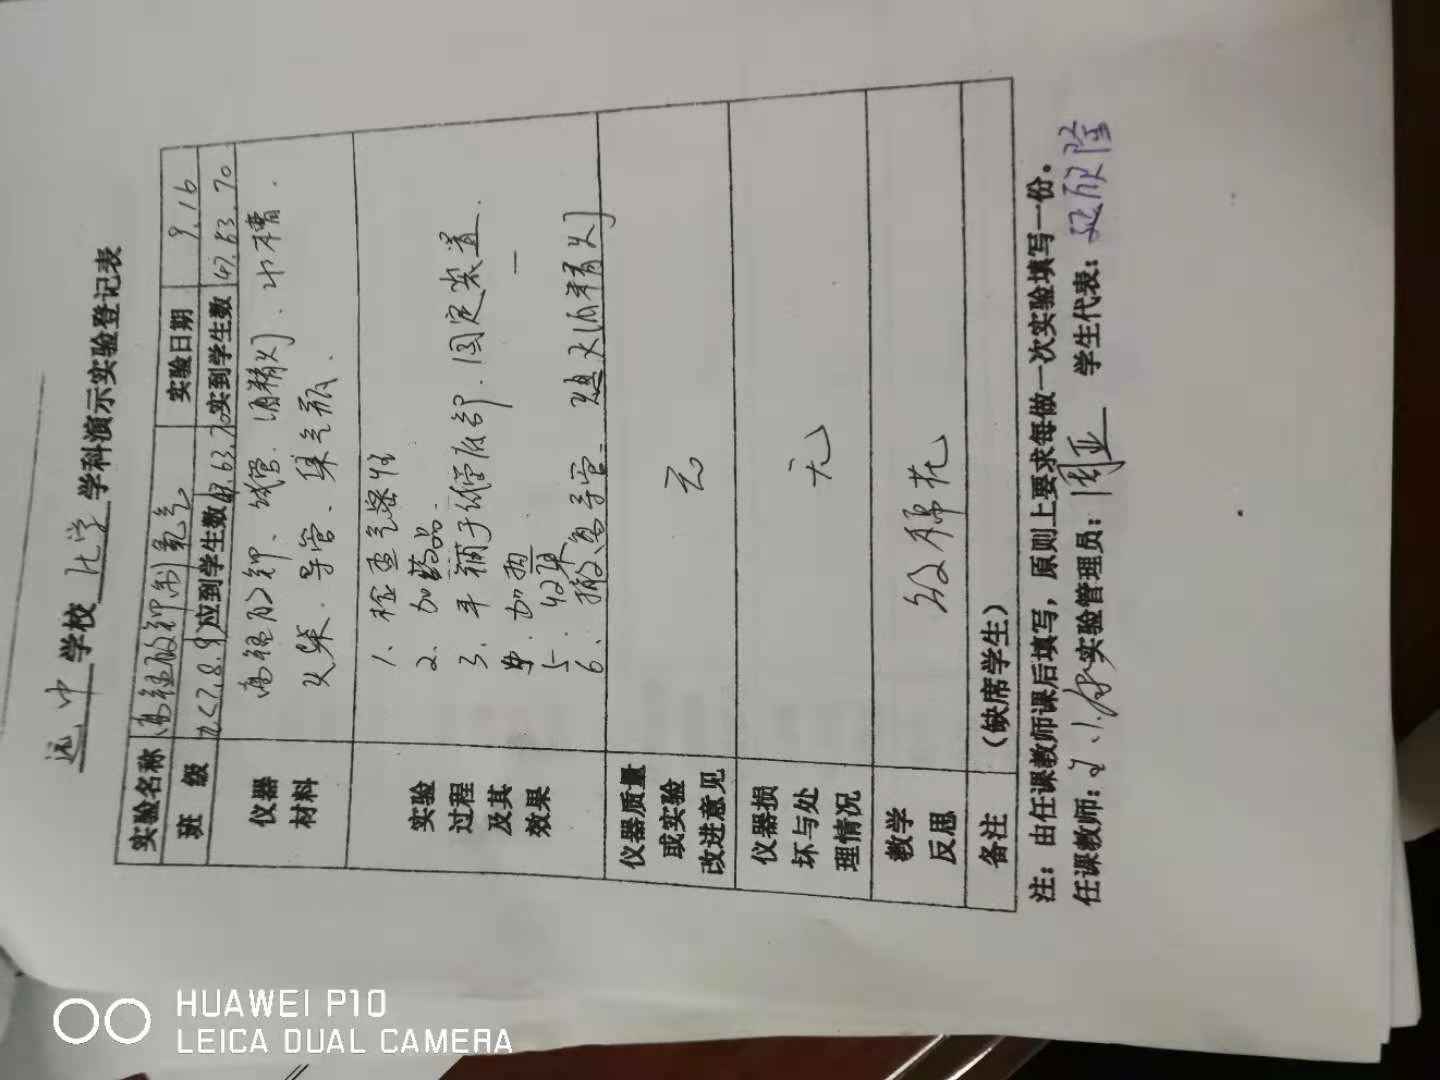 远中学校 化学 学科演示实验登记表
实验名称 高锰酸钾制氧气 实验日期 9.16
班 级 九<7.8.9> 应到学生数 63.70 实到学生数 47.63.70
仪器材料 高锰酸钾、试管、酒精灯、水槽.
火柴.导管、集气瓶.
实验过程及其效果 1、检查气密性
2、加药品.
3、平铺于试管底部.固定装置.
4.加热
5.收集
6、撤离导管.熄灭酒精灯
仪器质量或实验改进意见 无
仪器损坏与处理情况 无
教学反思 放棉花
备注 (缺席学生)
注:由任课教师课后填写,原则上要求每做一次实验填写一份。
任课教师: 实验管理员:周亚 学生代表:
HUAWEI P10
LEICA DUAL CAMERA